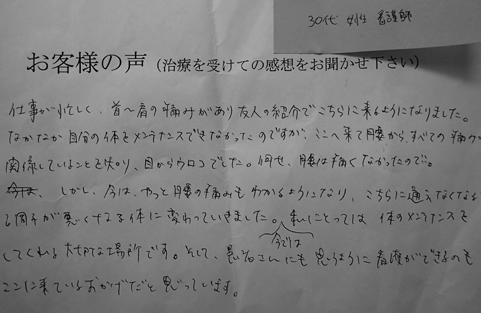 30代 女性 看護師
お客様の声(治療を受けての感想をお聞かせ下さい)
仕事が忙しく、首〜肩の痛みがあり友人の紹介でこちらに来るようになりました。
なかなか自分の体をメンテナンスできなかったのですが、ここへ来て腰から、すべての痛みが
関係していることを知り、目からウロコでした。何せ、腰は痛くなかったので。
しかし、今は、やっと腰の痛みもわかるようになり、こちらに通えなくなる
と調子が悪くなる体に変わっていきました。私にとっては 体のメンテナンスを
してくれる大切な場所です。そして、今では患者さんにも思うように看護ができるのも
ここに来ているおかげだと思っています。